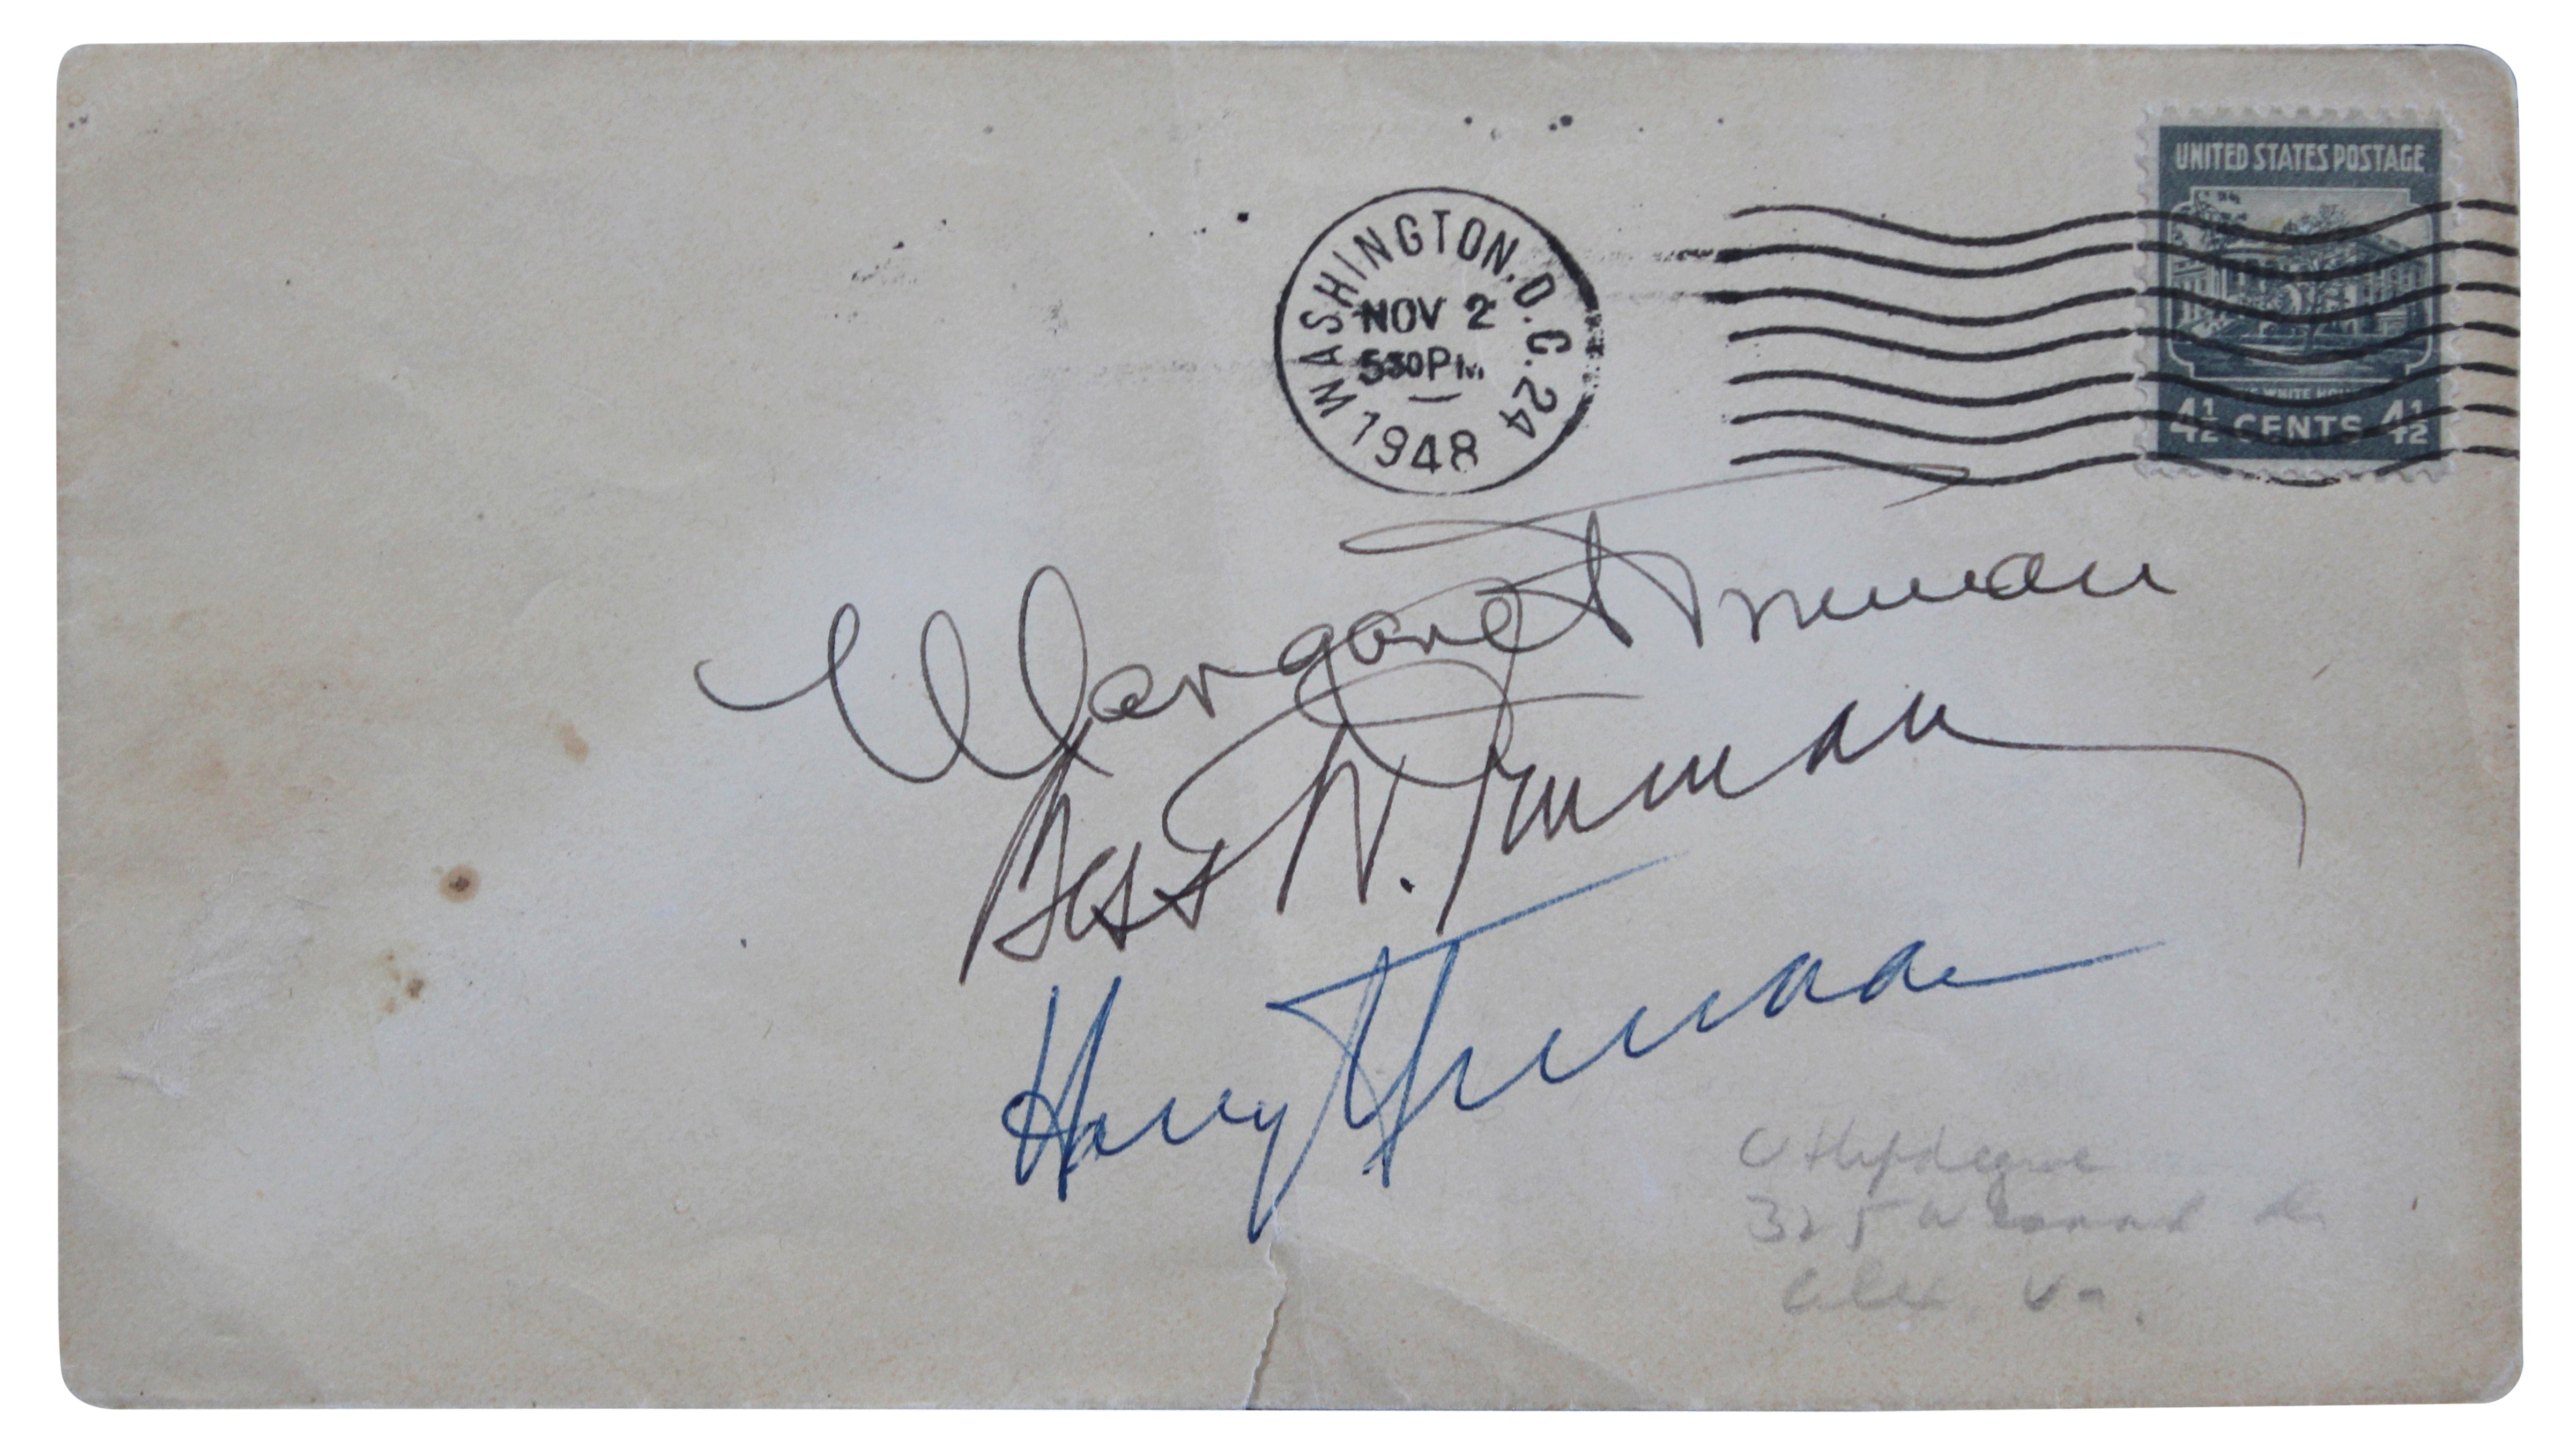 UNITED STATES POSTAGE
WHITE
4½ CENTS 4½
WASHINGTON, D.C. 24
NOV 2
530PM
1948
Margaret Truman
Bess W. Truman
Harry Truman
325
Alex, Va.